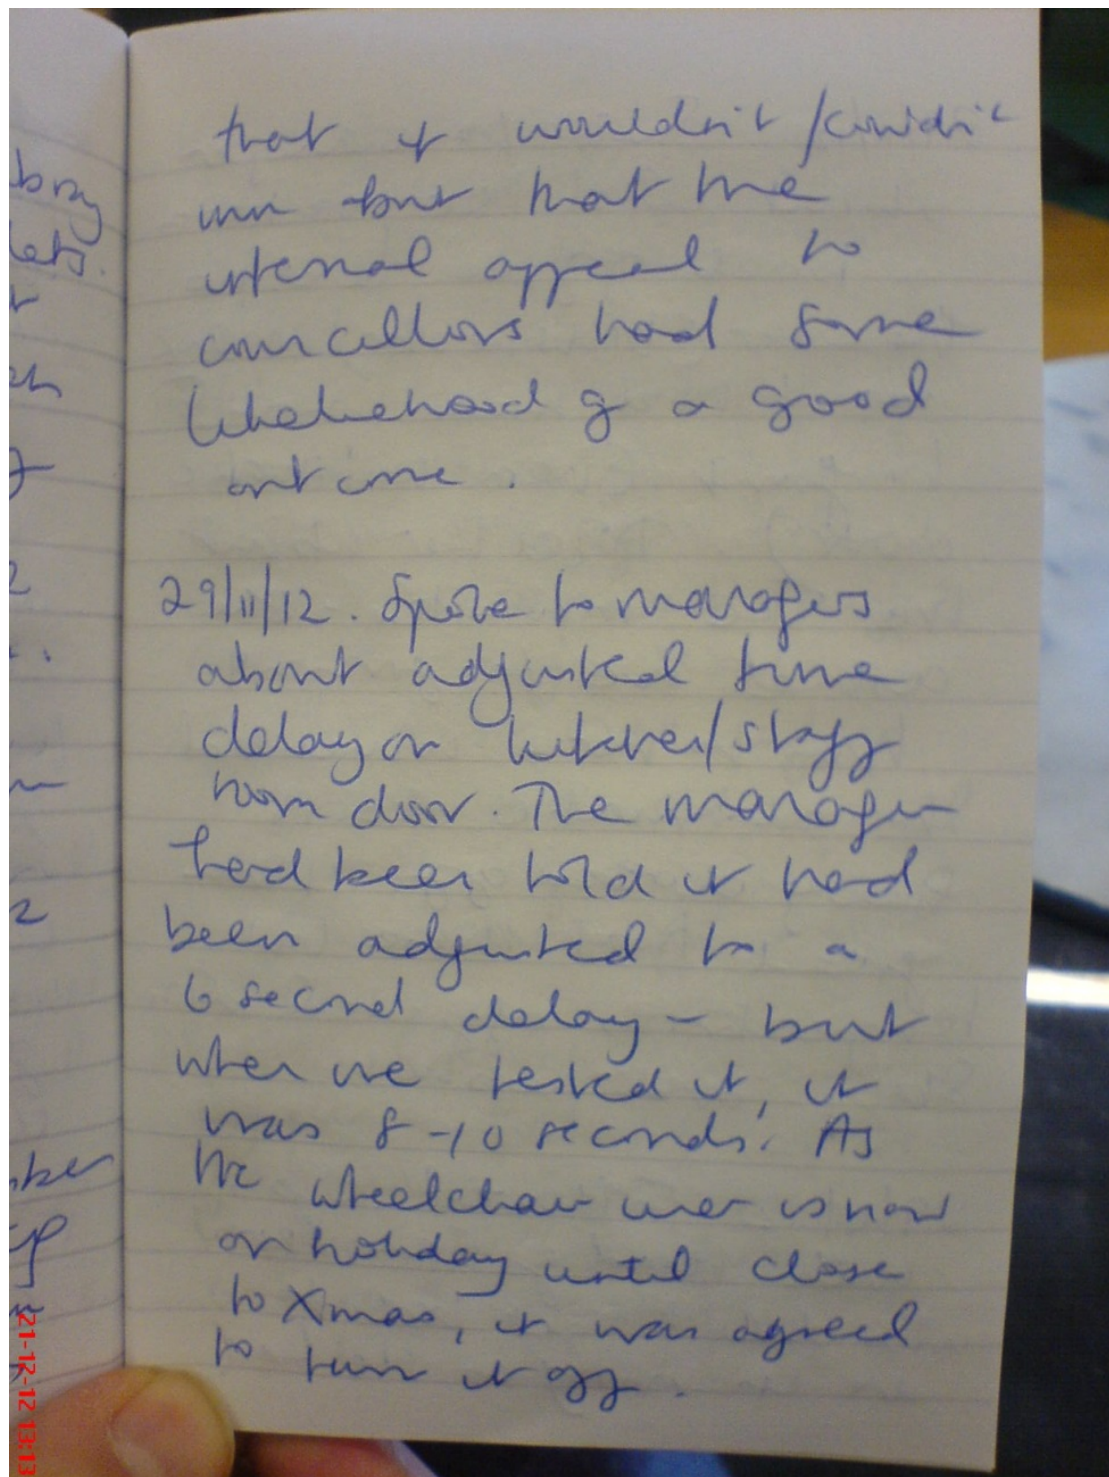 that it wouldn't/couldn't
win but that the
internal appeal to
councellors had some
likelihood of a good
outcome.
29/11/12. Spoke to managers
about adjusted time
delay on kitchen/staff
room door. The manager
had been told it had
been adjusted to a
6 second delay - but
when we tested it, it
was 8-10 seconds. As
the wheelchair user is now
on holiday until close
to Xmas, it was agreed
to turn it off.
21-12-12 13:13